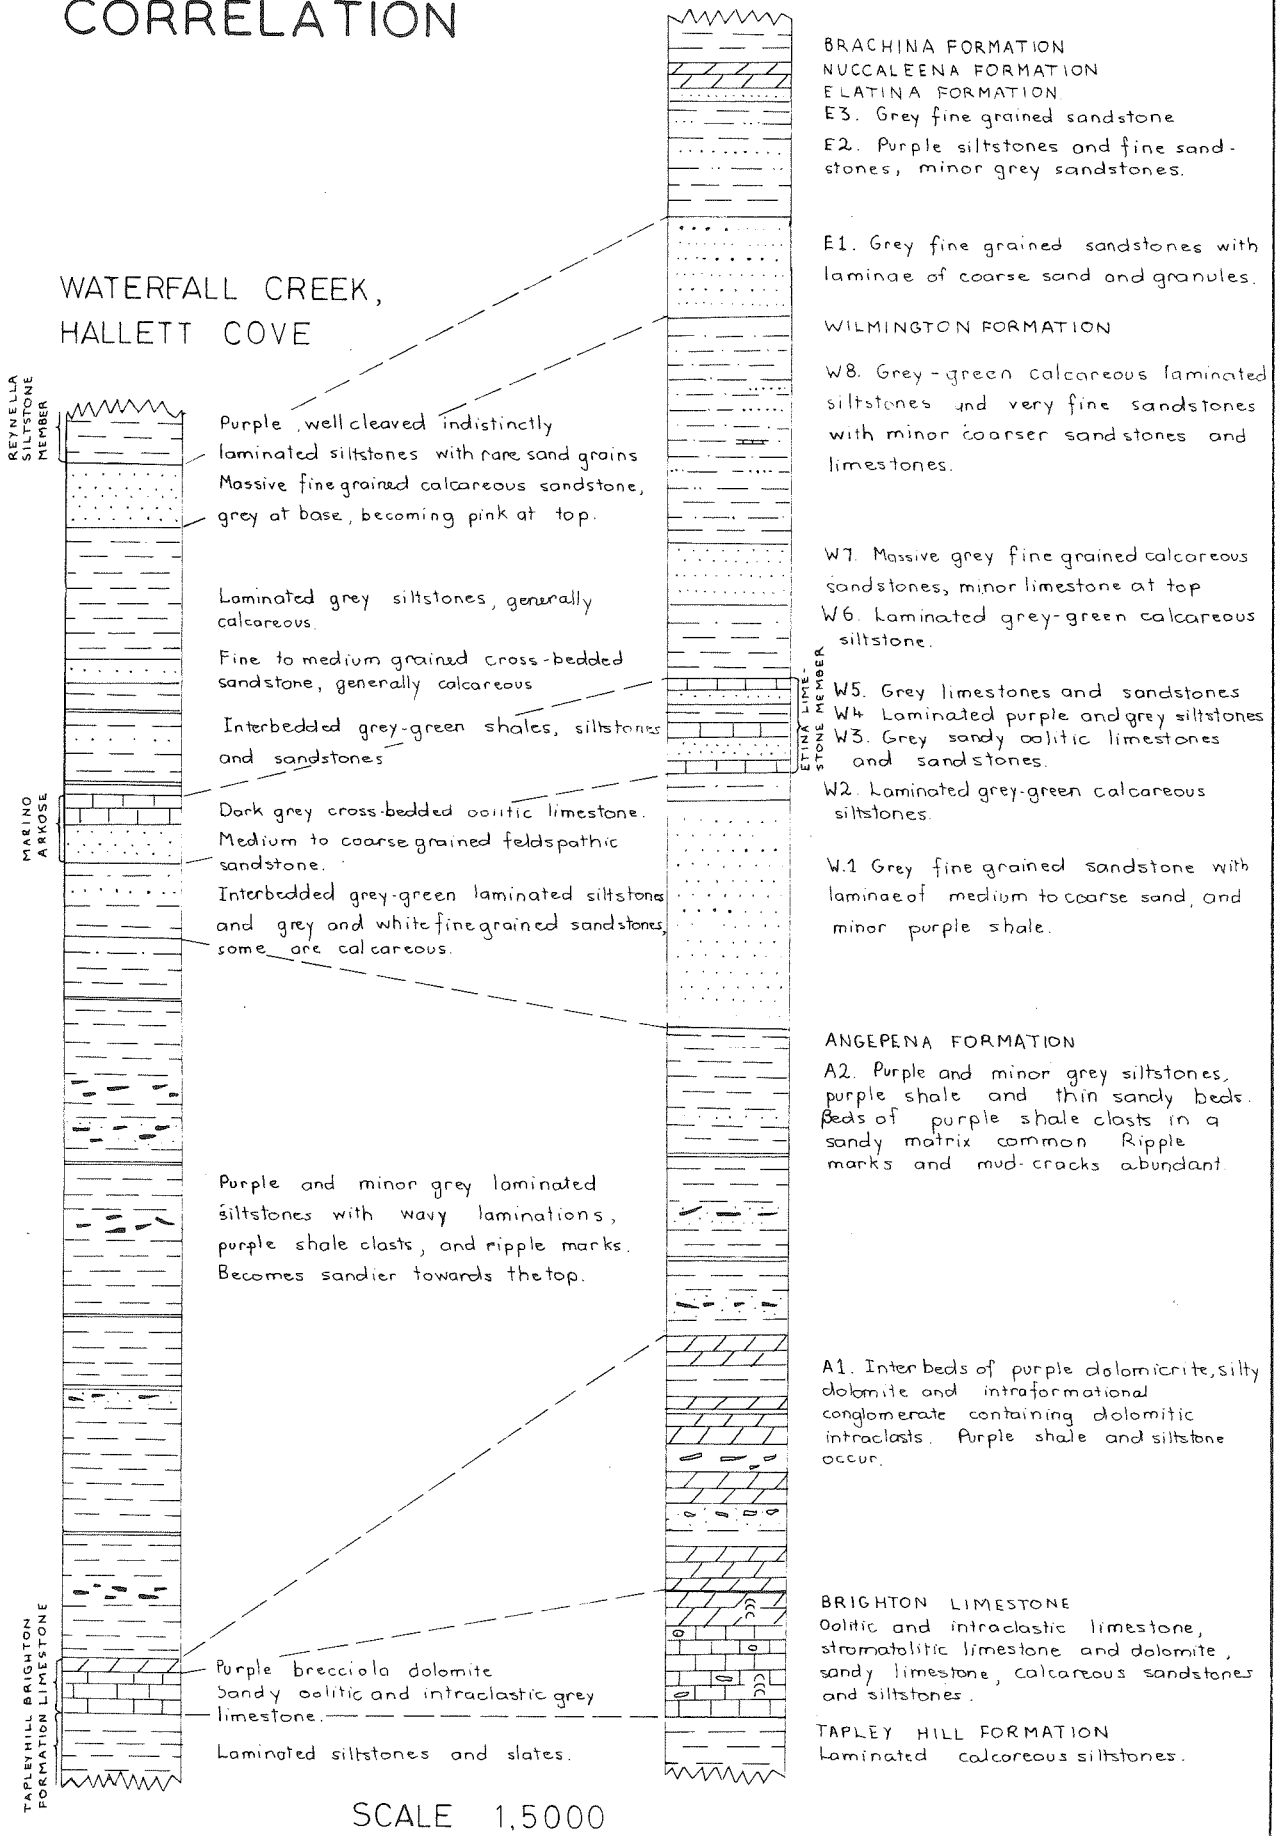 CORRELATION
WATERFALL CREEK,
HALLETT COVE
REYNELLA
SILTSTONE
MEMBER
Purple, well cleaved indistinctly
laminated siltstones with rare sand grains
Massive fine grained calcareous sandstone,
grey at base, becoming pink at top.
Laminated grey siltstones, generally
calcareous.
Fine to medium grained cross-bedded
sandstone, generally calcareous
Interbedded grey-green shales, siltstones
and sandstones
MARINO
ARKOSE
Dark grey cross-bedded oolitic limestone.
Medium to coarse grained feldspathic
sandstone.
Interbedded grey-green laminated siltstones
and grey and white fine grained sandstones,
some are calcareous.
Purple and minor grey laminated
siltstones with wavy laminations,
purple shale clasts, and ripple marks.
Becomes sandier towards the top.
TAPLEY HILL BRIGHTON
FORMATION LIMESTONE
Purple brecciola dolomite
Sandy oolitic and intraclastic grey
limestone.
Laminated siltstones and slates.
BRACHINA FORMATION
NUCCALEENA FORMATION
ELATINA FORMATION
E3. Grey fine grained sandstone
E2. Purple siltstones and fine sand-
stones, minor grey sandstones.
E1. Grey fine grained sandstones with
laminae of coarse sand and granules.
WILMINGTON FORMATION
W8. Grey-green calcareous laminated
siltstones and very fine sandstones
with minor coarser sandstones and
limestones.
W7. Massive grey fine grained calcareous
sandstones, minor limestone at top
W6. Laminated grey-green calcareous
siltstone.
ETINA LIME-
STONE MEMBER
W5. Grey limestones and sandstones
W4 Laminated purple and grey siltstones
W3. Grey sandy oolitic limestones
and sandstones.
W2. Laminated grey-green calcareous
siltstones.
W.1 Grey fine grained sandstone with
laminae of medium to coarse sand, and
minor purple shale.
ANGEPENA FORMATION
A2. Purple and minor grey siltstones,
purple shale and thin sandy beds.
Beds of purple shale clasts in a
sandy matrix common Ripple
marks and mud-cracks abundant.
A1. Interbeds of purple dolomicrite, silty
dolomite and intraformational
conglomerate containing dolomitic
intraclasts. Purple shale and siltstone
occur.
BRIGHTON LIMESTONE
Oolitic and intraclastic limestone,
stromatolitic limestone and dolomite,
sandy limestone, calcareous sandstones
and siltstones.
TAPLEY HILL FORMATION
Laminated calcareous siltstones.
SCALE 1,5000